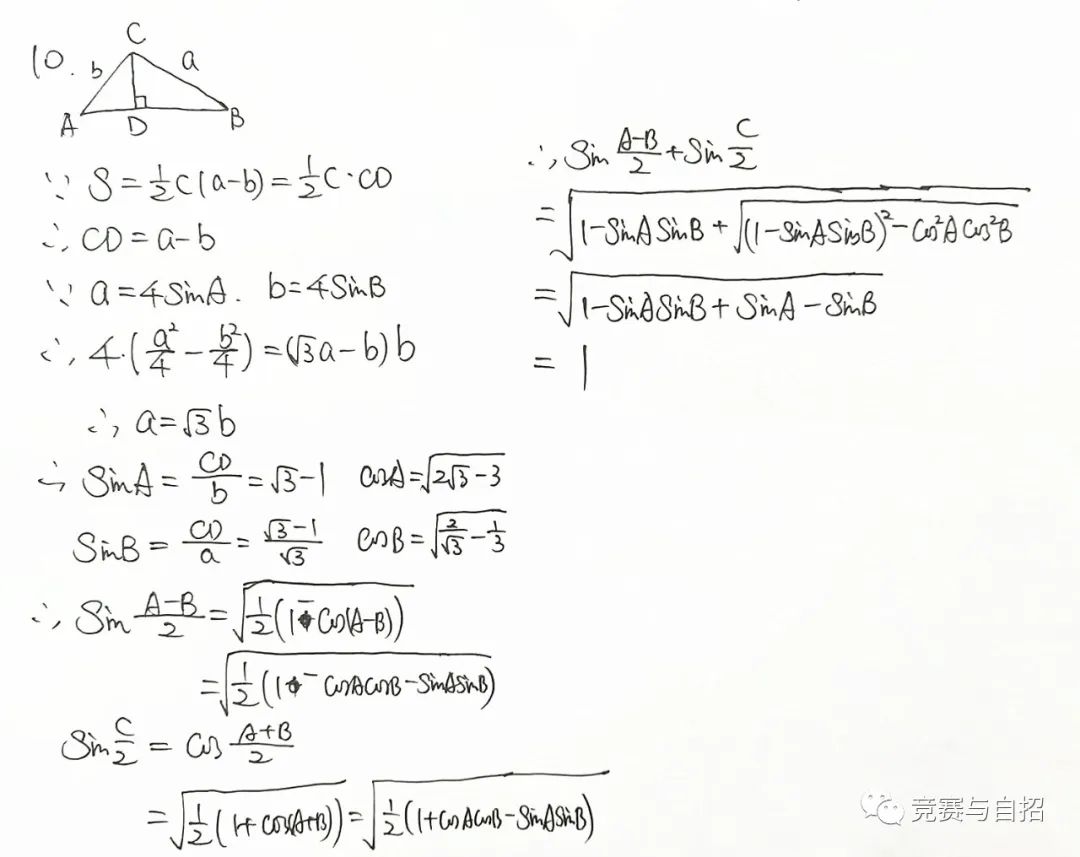 10.
C
b a
A D B
∵ S = 1/2 C(a-b) = 1/2 C·CD
∴ CD = a-b
∵ a = 4SinA. b = 4SinB
∴ 4·(a²/4 - b²/4) = (√3a-b)b
∴ a = √3b
∴ SinA = CD/b = √3-1 CosA = √(2√3-3)
SinB = CD/a = (√3-1)/√3 CosB = √(2/√3 - 1/3)
∴ Sin (A-B)/2 = √(1/2(1-Cos(A-B)))
= √(1/2(1-CosACosB-SinASinB))
Sin C/2 = Cos (A+B)/2
= √(1/2(1+Cos(A+B))) = √(1/2(1+CosACosB-SinASinB))
∴ Sin (A-B)/2 + Sin C/2
= √(1-SinASinB+√((1-SinASinB)²-Cos²ACos²B))
= √(1-SinASinB+SinA-SinB)
= 1
竞赛与自招